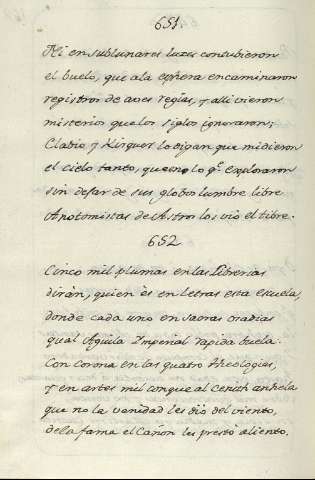 651
Ni en sublunares luzes contubieron
el buelo, que ala esphera encaminaron
registros de aves regias, y alli vieron
misterios que los siglos ignoraron;
Clabio, y Kirquer lo digan que midieron
el cielo tanto, que en lo q.e exploraron
sin dejar de sus globos lumbre libre
Anotomistas de Astros los viò el tibre.
652
Cinco mil plumas en las Librerias
diràn, quien ès en letras esta escuela,
donde cada uno en sacras
qual Aguila Imperial rapida buela.
Con corona en las quatro theologias,
y en artes mil con que al Cenith anhela
que no la vanidad les diò del viento,
de la fama el Cañon les prestò aliento.